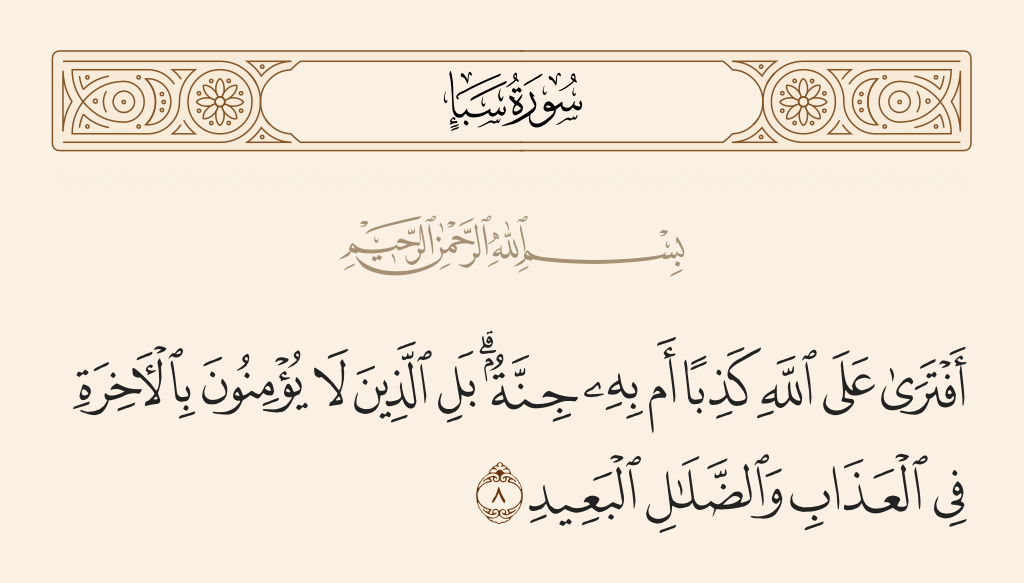 سُورَةُ سَبَإٍ
بِسْمِ ٱللَّهِ ٱلرَّحْمَٰنِ ٱلرَّحِيمِ
أَفْتَرَىٰ عَلَى ٱللَّهِ كَذِبًا أَم بِهِۦ جِنَّةُۢ ۗ بَلِ ٱلَّذِينَ لَا يُؤْمِنُونَ بِٱلْـَٔاخِرَةِ
فِى ٱلْعَذَابِ وَٱلضَّلَٰلِ ٱلْبَعِيدِ ٨